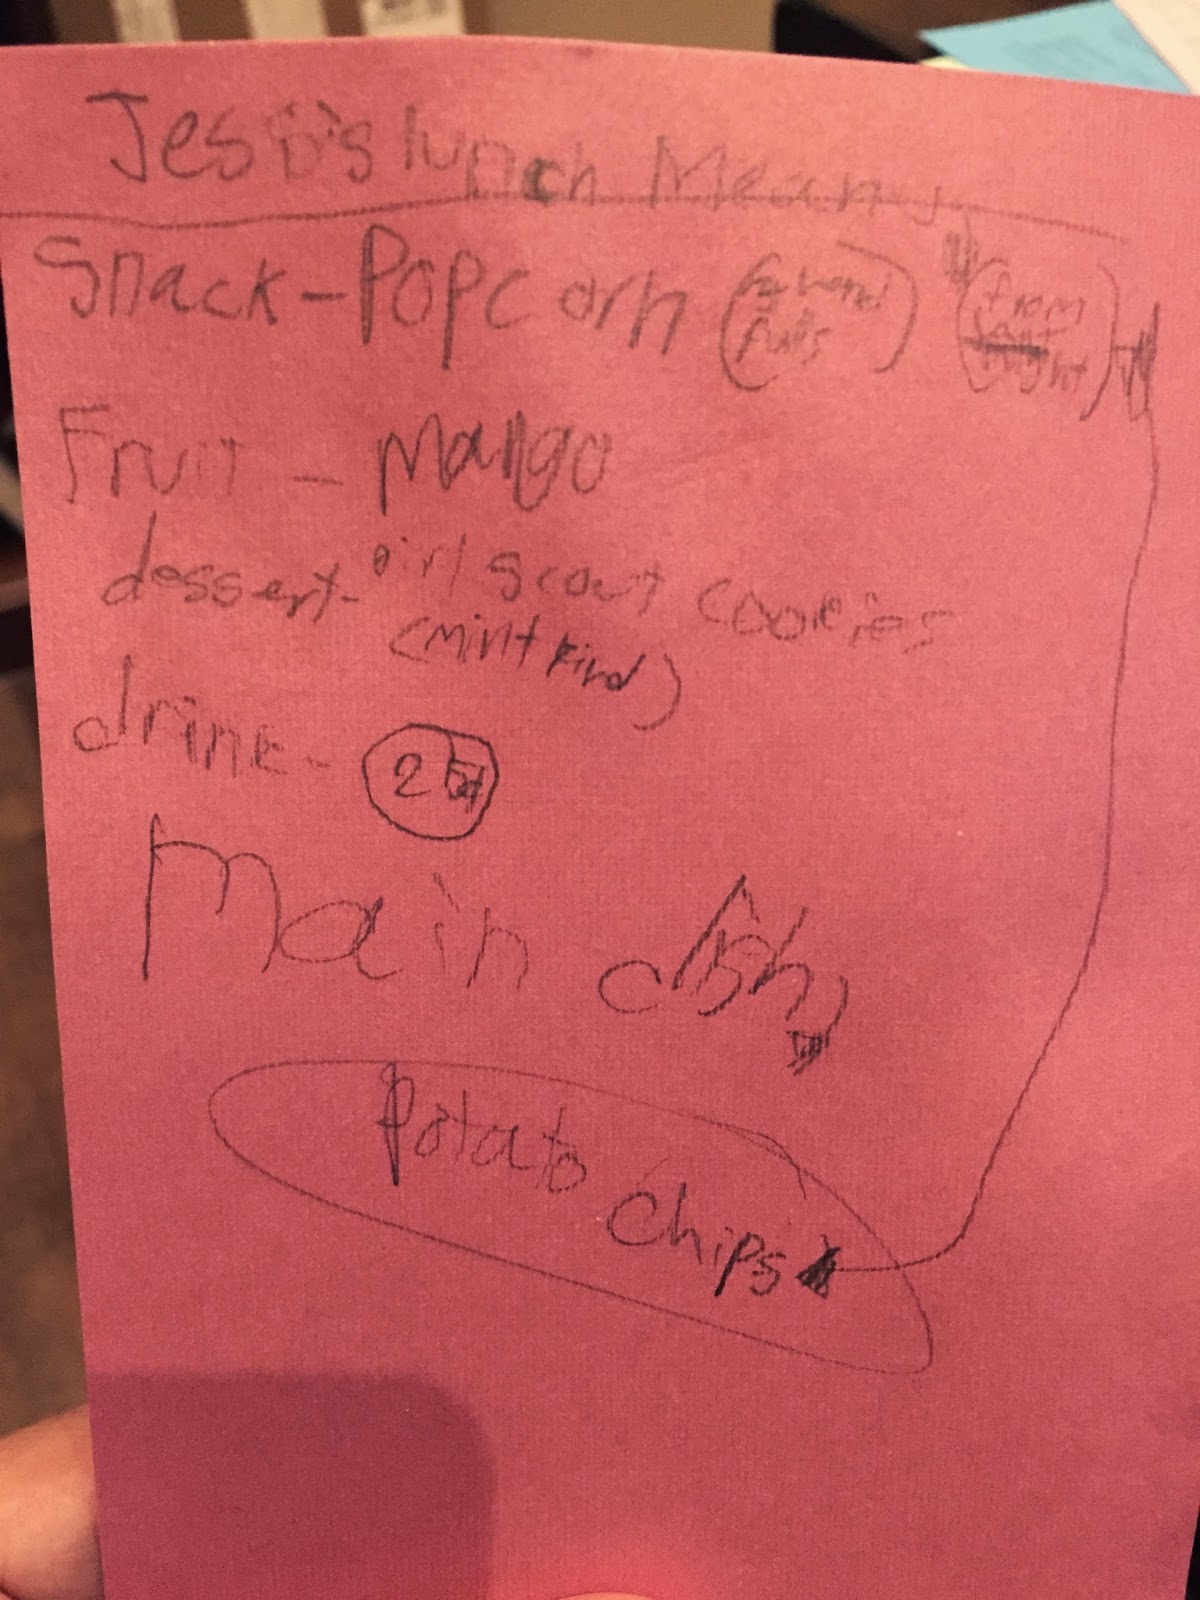 Jesi's lunch Meany
Snack - Popcorn (hand fulls) (from night)
Fruit - Mango
dessert - girl scout cookies
(mint kind)
drink - 2
Main dish,
Potato Chips